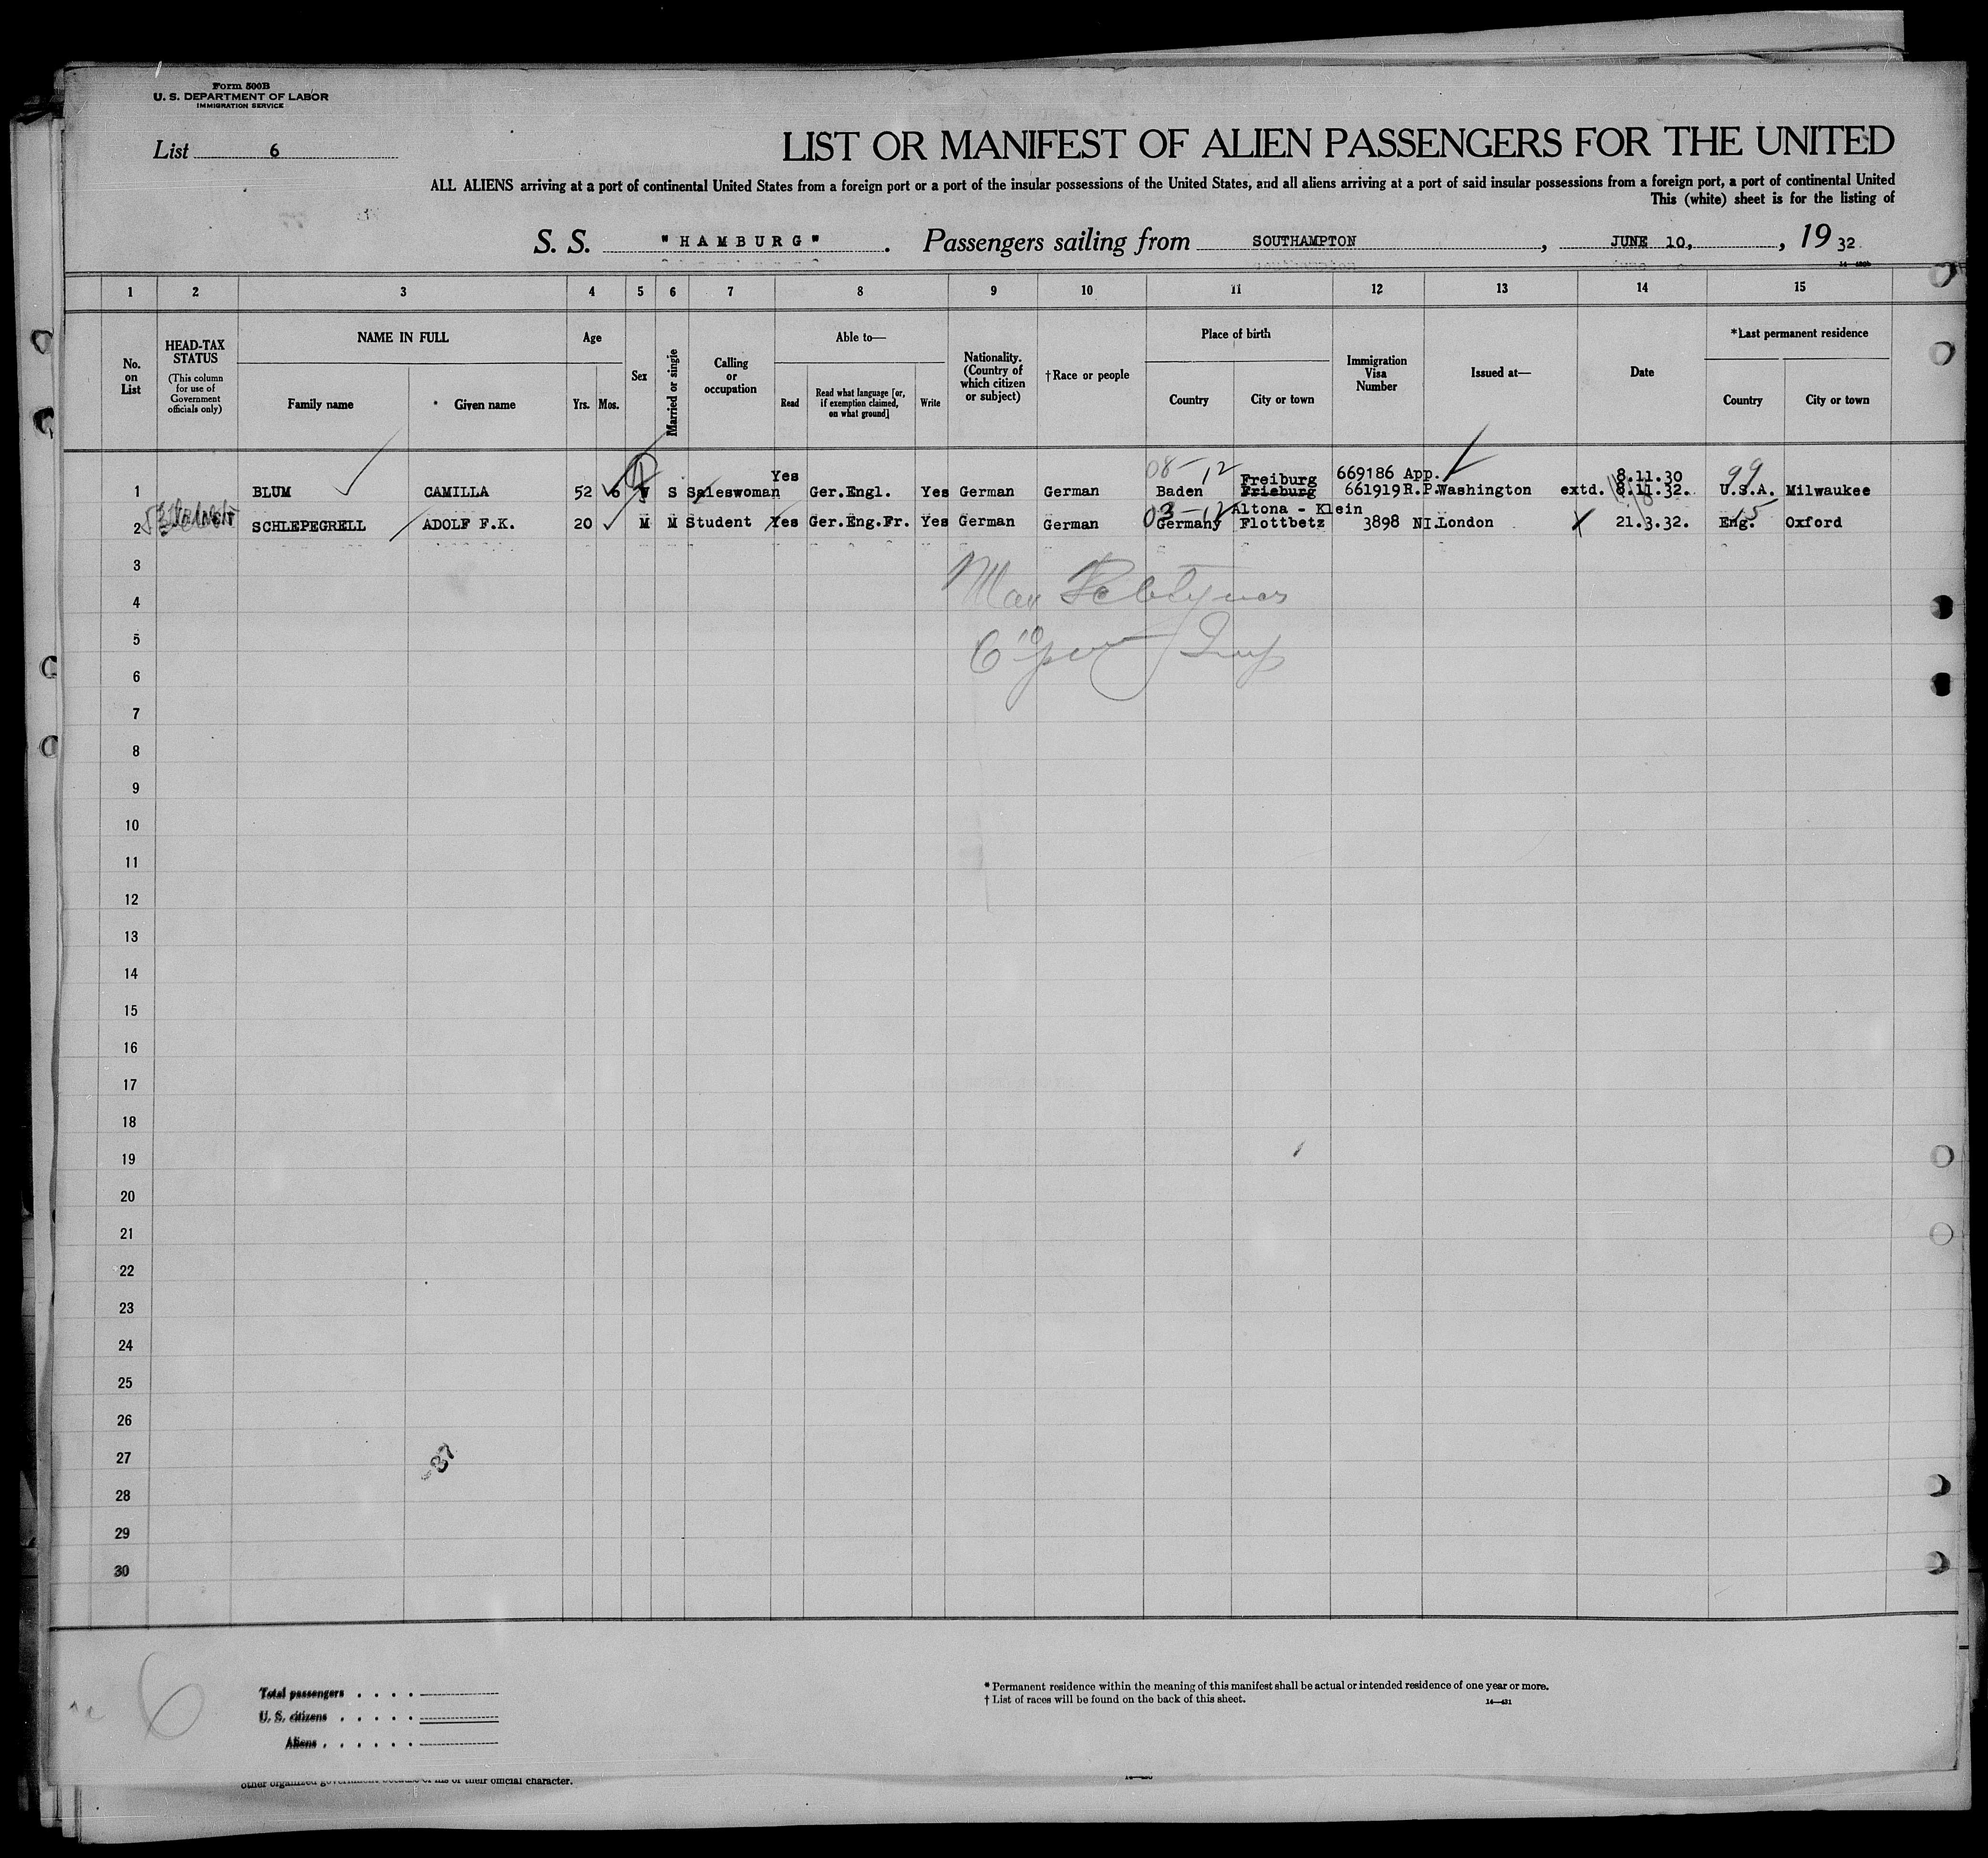 Form 500B
U. S. DEPARTMENT OF LABOR
IMMIGRATION SERVICE
List 6
LIST OR MANIFEST OF ALIEN PASSENGERS FOR THE UNITED
ALL ALIENS arriving at a port of continental United States from a foreign port or a port of the insular possessions of the United States, and all aliens arriving at a port of said insular possessions from a foreign port, a port of continental United
This (white) sheet is for the listing of
S. S. "HAMBURG". Passengers sailing from SOUTHAMPTON, JUNE 10, 1932
1 2 3 4 5 6 7 8 9 10 11 12 13 14 15
No. on List
HEAD-TAX STATUS
(This column for use of Government officials only)
NAME IN FULL
Family name
Given name
Age
Yrs. Mos.
Sex
Married or single
Calling or occupation
Able to—
Read
Read what language [or, if exemption claimed, on what ground]
Write
Nationality. (Country of which citizen or subject)
†Race or people
Place of birth
Country
City or town
Immigration Visa Number
Issued at—
Date
*Last permanent residence
Country
City or town
08-12 99
Yes Freiburg 669186 App. 8.11.30
1 BLUM CAMILLA 52 6 S Saleswoman Ger.Engl. Yes German German Baden Frieburg 661919 R.P. Washington extd. 8.11.32. U.S.A. Milwaukee
03-12 Altona - Klein 15
2 SCHLEPEGRELL ADOLF F.K. 20 M M Student Yes Ger.Eng.Fr. Yes German German Germany Flottbetz 3898 NI. London 21.3.32. Eng. Oxford
3
4
5
6
7
8
9
10
11
12
13
14
15
16
17
18
19
20
21
22
23
24
25
26
27
28
29
30
37
6
Total passengers
U. S. citizens
Aliens
* Permanent residence within the meaning of this manifest shall be actual or intended residence of one year or more.
† List of races will be found on the back of this sheet.
14—431
other organized government because of his or their official character.